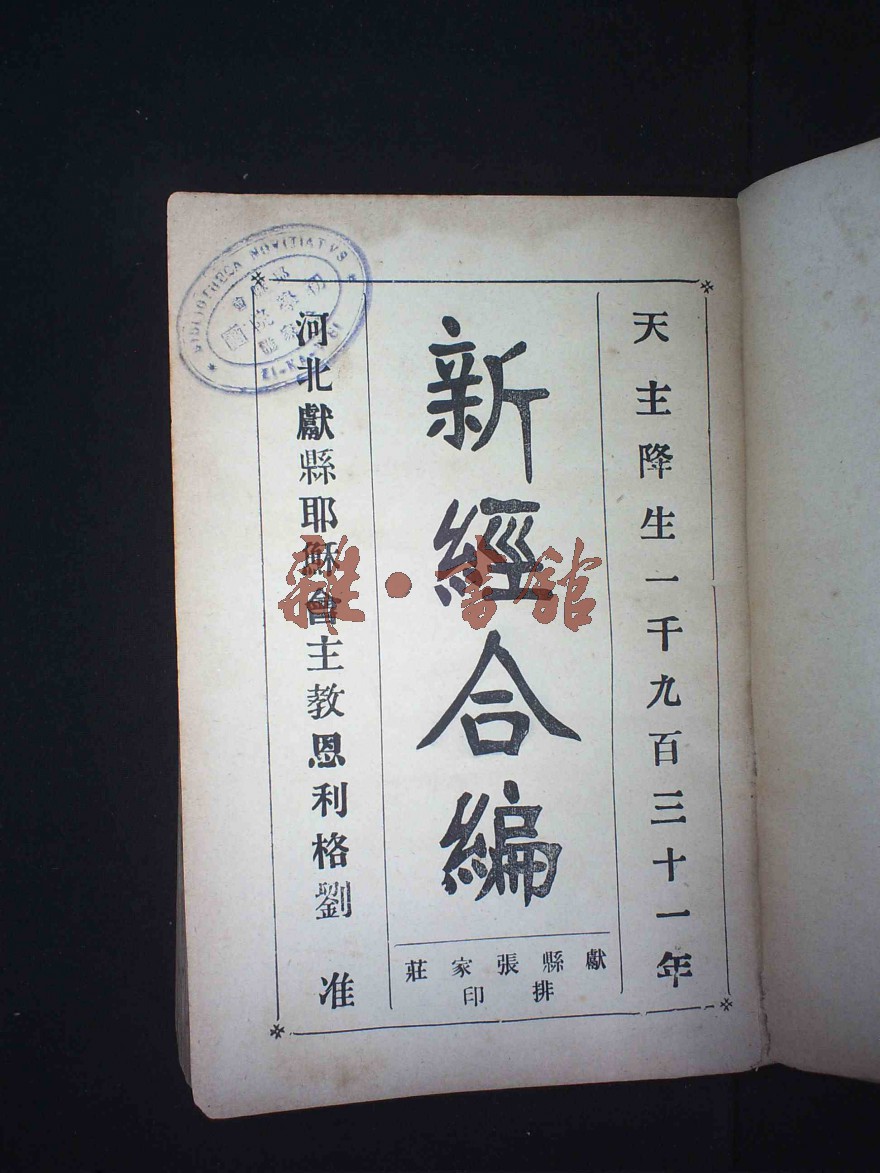 天主降生一千九百三十一年
新經合編
獻縣張家莊
排印
河北獻縣耶穌會主教恩利格劉 准
BIBLIOTHECA NOVITIATVS
雜·書館